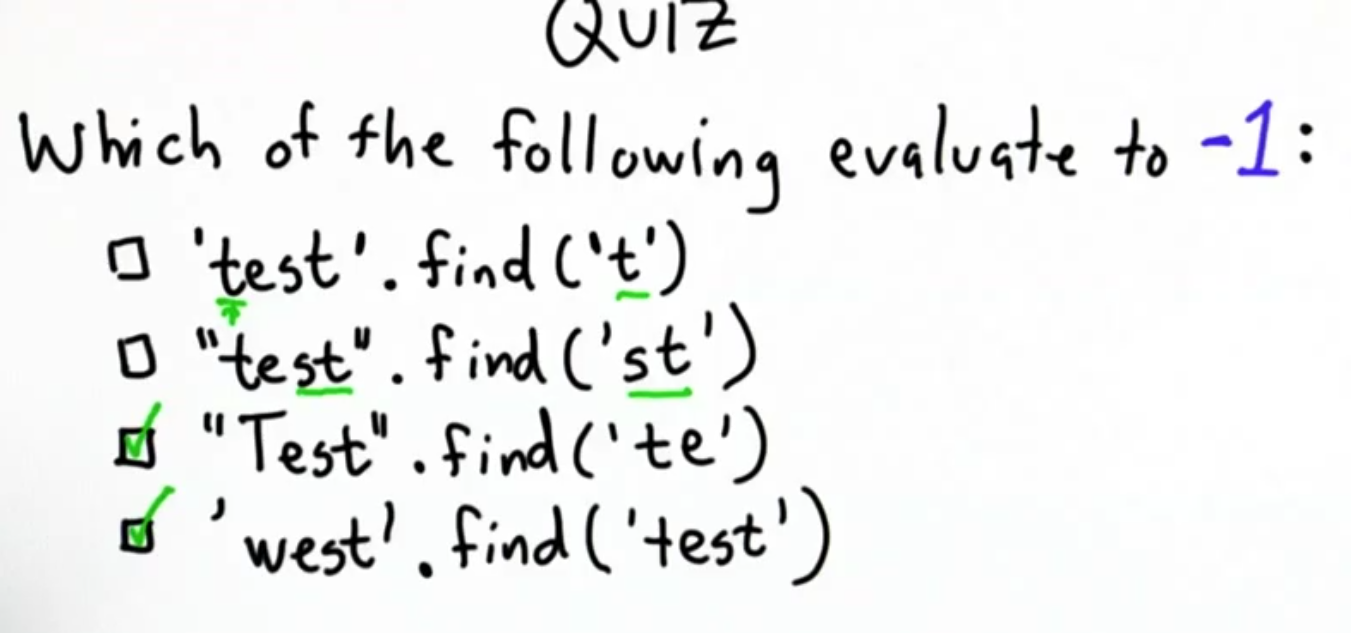 QUIZ
Which of the following evaluate to -1:
'test'.find('t')
"test".find('st')
"Test".find('te')
'west'.find('test')